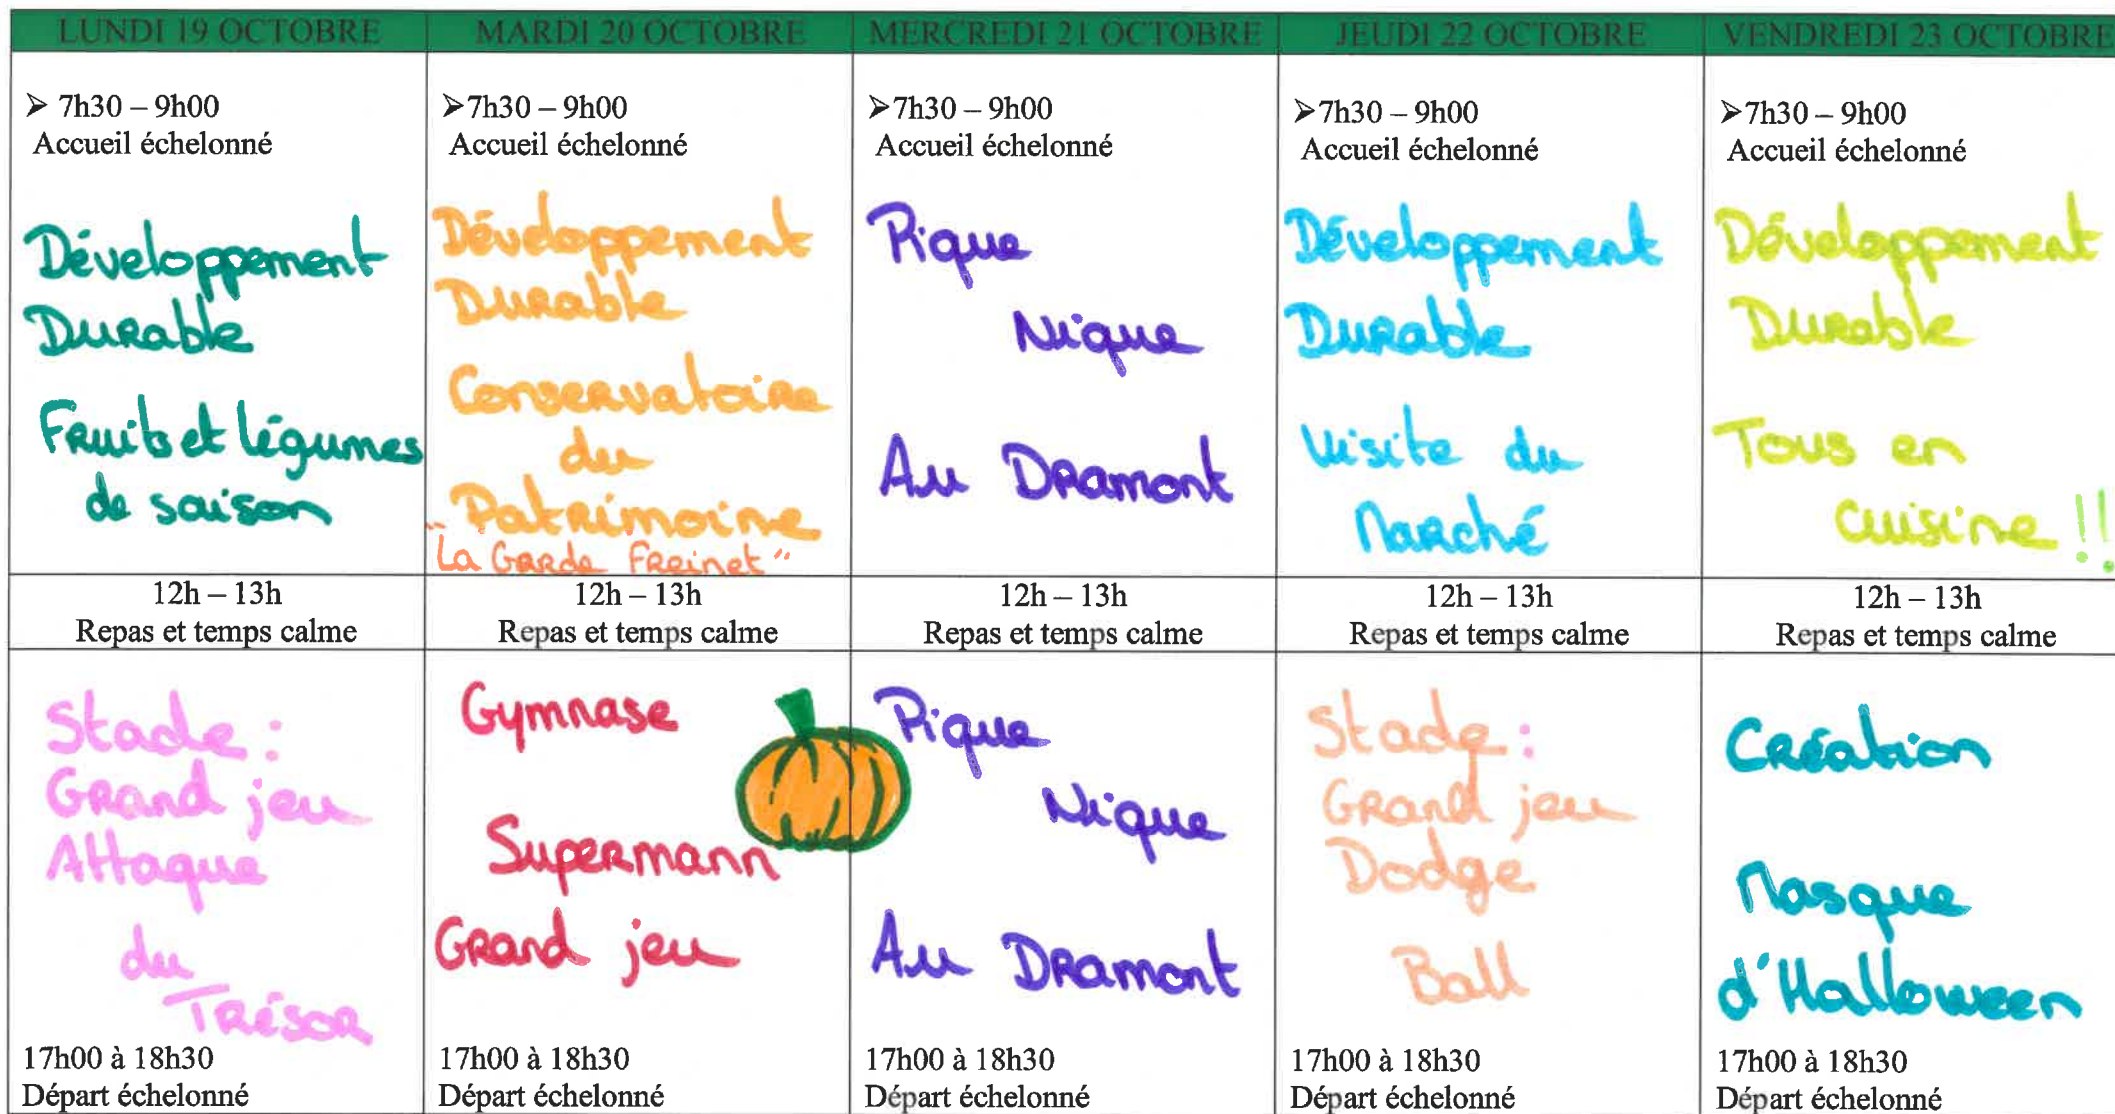 LUNDI 19 OCTOBRE
MARDI 20 OCTOBRE
MERCREDI 21 OCTOBRE
JEUDI 22 OCTOBRE
VENDREDI 23 OCTOBRE
➢ 7h30 – 9h00
Accueil échelonné
Développement
Durable
Fruits et légumes
de saison
➢7h30 – 9h00
Accueil échelonné
Développement
Durable
Conservatoire
du
Patrimoine
"La Garde Freinet"
➢7h30 – 9h00
Accueil échelonné
Pique
Nique
Au Dramont
➢7h30 – 9h00
Accueil échelonné
Développement
Durable
Visite du
Marché
➢7h30 – 9h00
Accueil échelonné
Développement
Durable
Tous en
cuisine !!
12h – 13h
Repas et temps calme
12h – 13h
Repas et temps calme
12h – 13h
Repas et temps calme
12h – 13h
Repas et temps calme
12h – 13h
Repas et temps calme
Stade :
Grand jeu
Attaque
du
Trésor
17h00 à 18h30
Départ échelonné
Gymnase
Supermann
Grand jeu
17h00 à 18h30
Départ échelonné
Pique
Nique
Au Dramont
17h00 à 18h30
Départ échelonné
Stade :
Grand jeu
Dodge
Ball
17h00 à 18h30
Départ échelonné
Création
Masque
d'Halloween
17h00 à 18h30
Départ échelonné